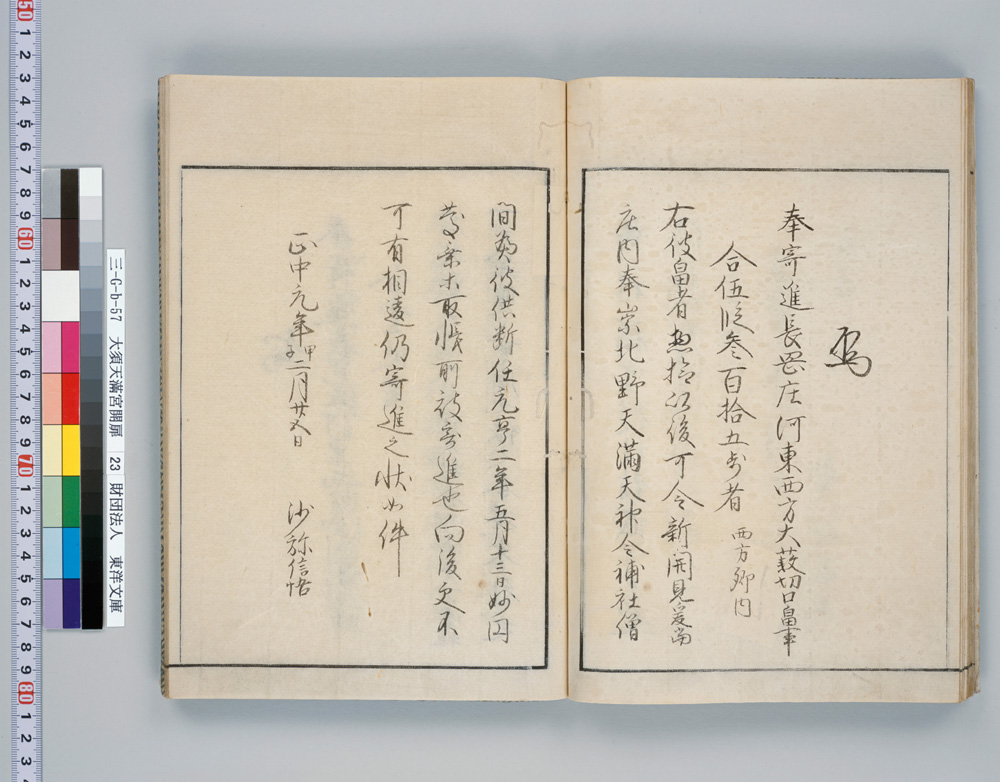 奉寄進長岡庄河東西方大薮切口畠事
合伍段参百拾五歩者 西方郷内
右彼畠者惣検以後可令新開見爰当
庄内奉崇北野天満天神令補社僧
間為彼供断任元亨二年五月十三日妙円
取帳所被寄進也向後更不
可有相違仍寄進之状如件
正中元年甲子二月廿五日 沙弥信悟
三-G-b-57 大須天満宮開扉 23 財団法人 東洋文庫
50 1 2 3 4 5 6 7 8 9 60 1 2 3 4 5 6 7 8 9 70 1 2 3 4 5 6 7 8 9 80 1 2 3